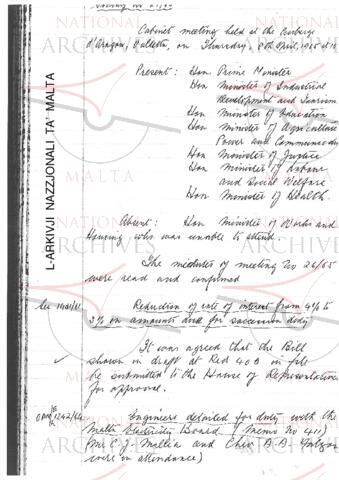 Cabinet meeting held at the Auberge
d'Aragon, Valletta, on Thursday, 8th April, 1965 at
Present: Hon. Prime Minister
Hon Minister of Industrial
Development and Tourism
Hon Minister of Education
Hon Minister of Agriculture
Power and Communications
Hon Minister of Justice
Hon Minister of Labour
and Social Welfare
Hon Minister of Health.
Absent: Hon Minister of Works and
Housing who was unable to attend.
The minutes of meeting No 26/65
were read and confirmed
Reduction of rate of interest from 4% to
3% on amounts due for succession duty
It was agreed that the Bill
shown in draft at Red 40B in file
be submitted to the House of Representatives
for approval.
Engineers detailed for duty with the
Malta Electricity Board (Memo No 411)
Mr C. J. Mallia and Chev. A. A.
were in attendance)
L-ARKIVJI NAZZJONALI TA' MALTA
NATIONAL
ARCHIVES
MALTA